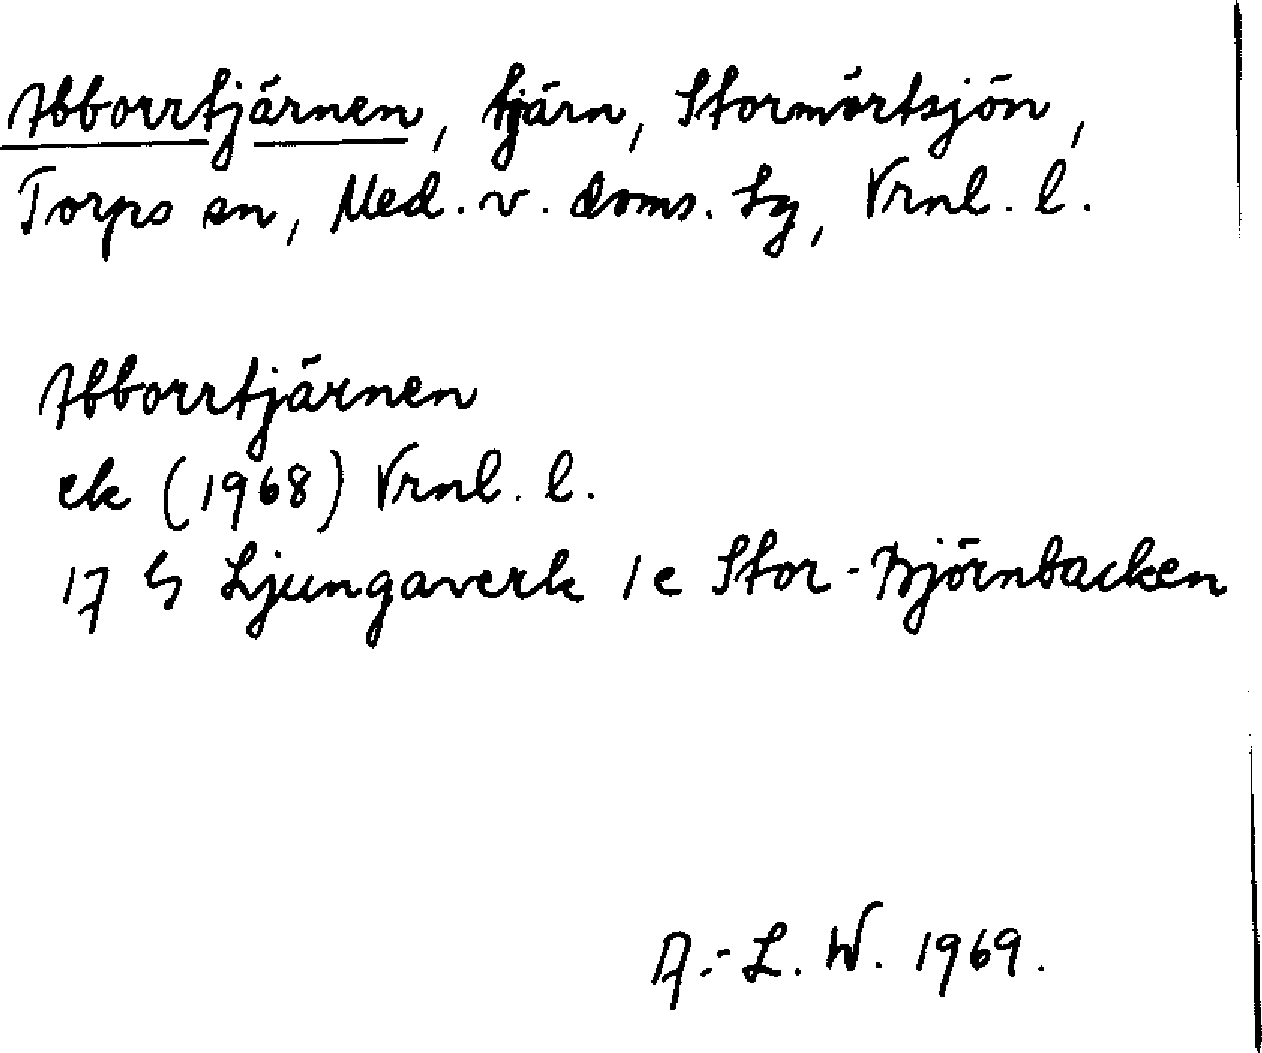 Abborrtjärnen, tjärn, Stormörtsjön,
Torps sn, Med. v. doms. tg, Vrnl. l.
Abborrtjärnen
ek (1968) Vrnl. l.
17 G Ljungaverk 1 c Stor-Björnbacken
A.-L. W. 1969.